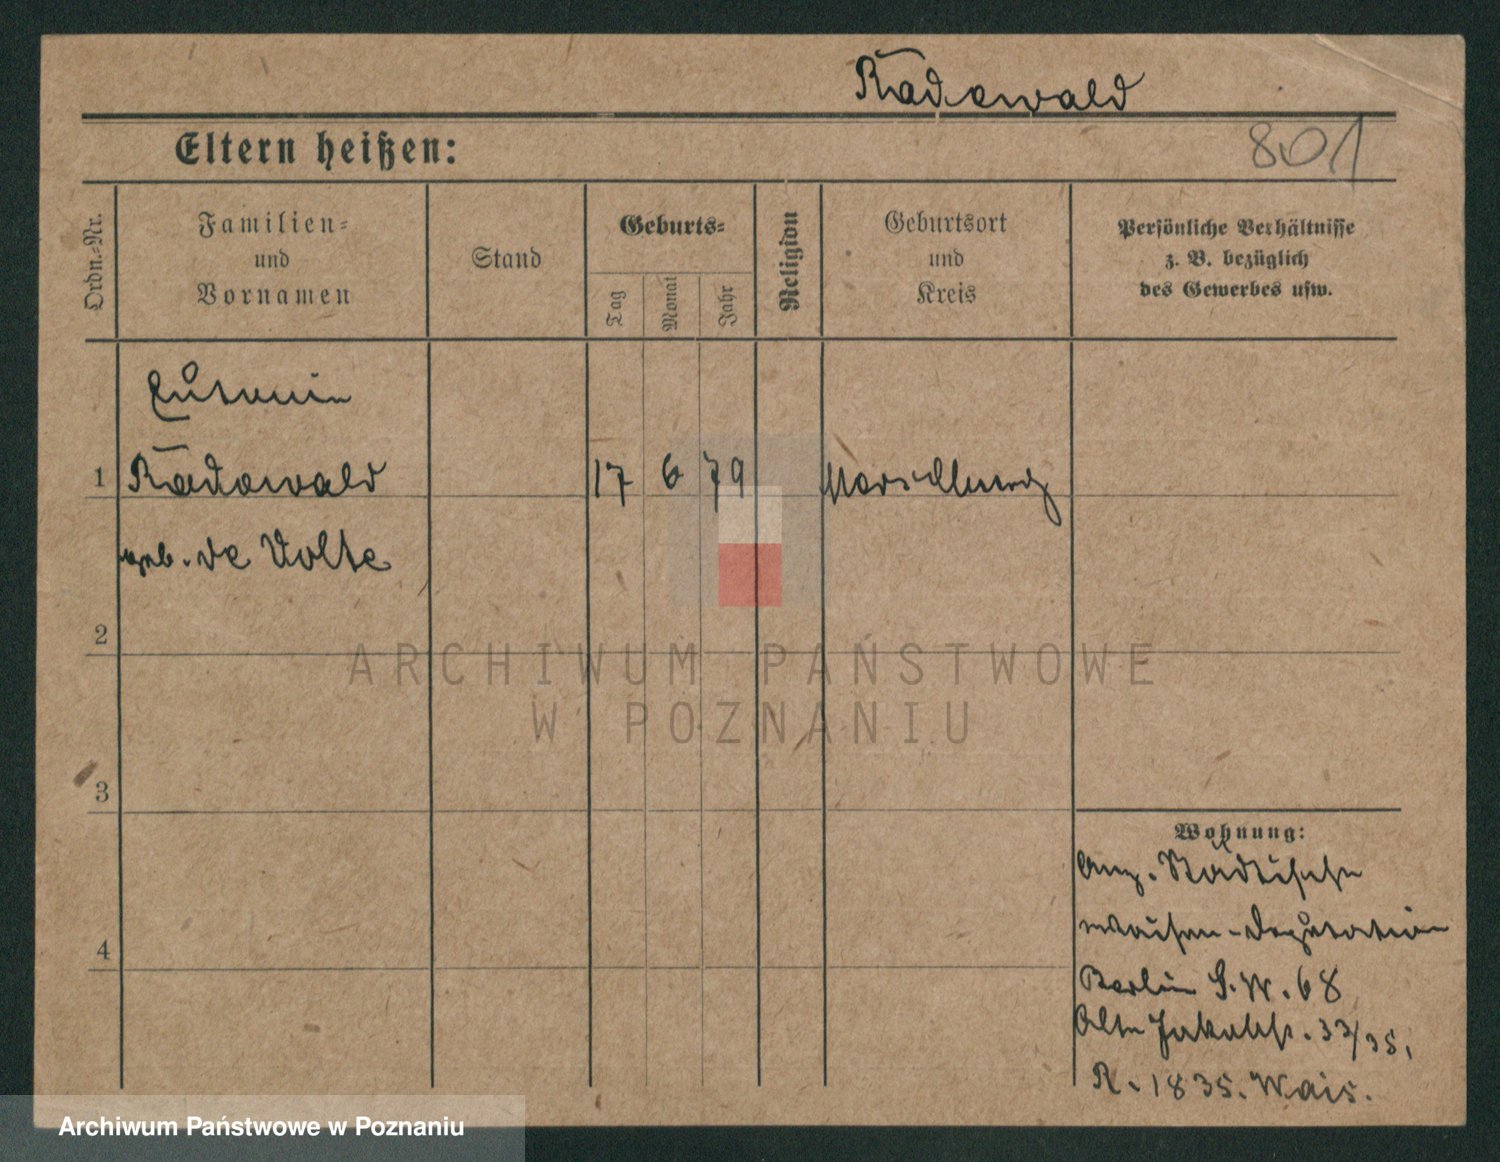 Radowald
801
Eltern heißen:
Ordn.-Nr.
Familien-
und
Vornamen
Stand
Geburts-
Tag
Monat
Jahr
Religion
Geburtsort
und
Kreis
Persönliche Verhältnisse
z. B. bezüglich
des Gewerbes usw.
1
Radowald
17 6 79
geb. de Volte
2
ARCHIWUM PAŃSTWOWE
W POZNANIU
3
Wohnung:
Städtische
Waisen-Deputation
4
Berlin S.W. 68
Alte Jakobstr. 33/35,
R. 1835. Wais.
Archiwum Państwowe w Poznaniu